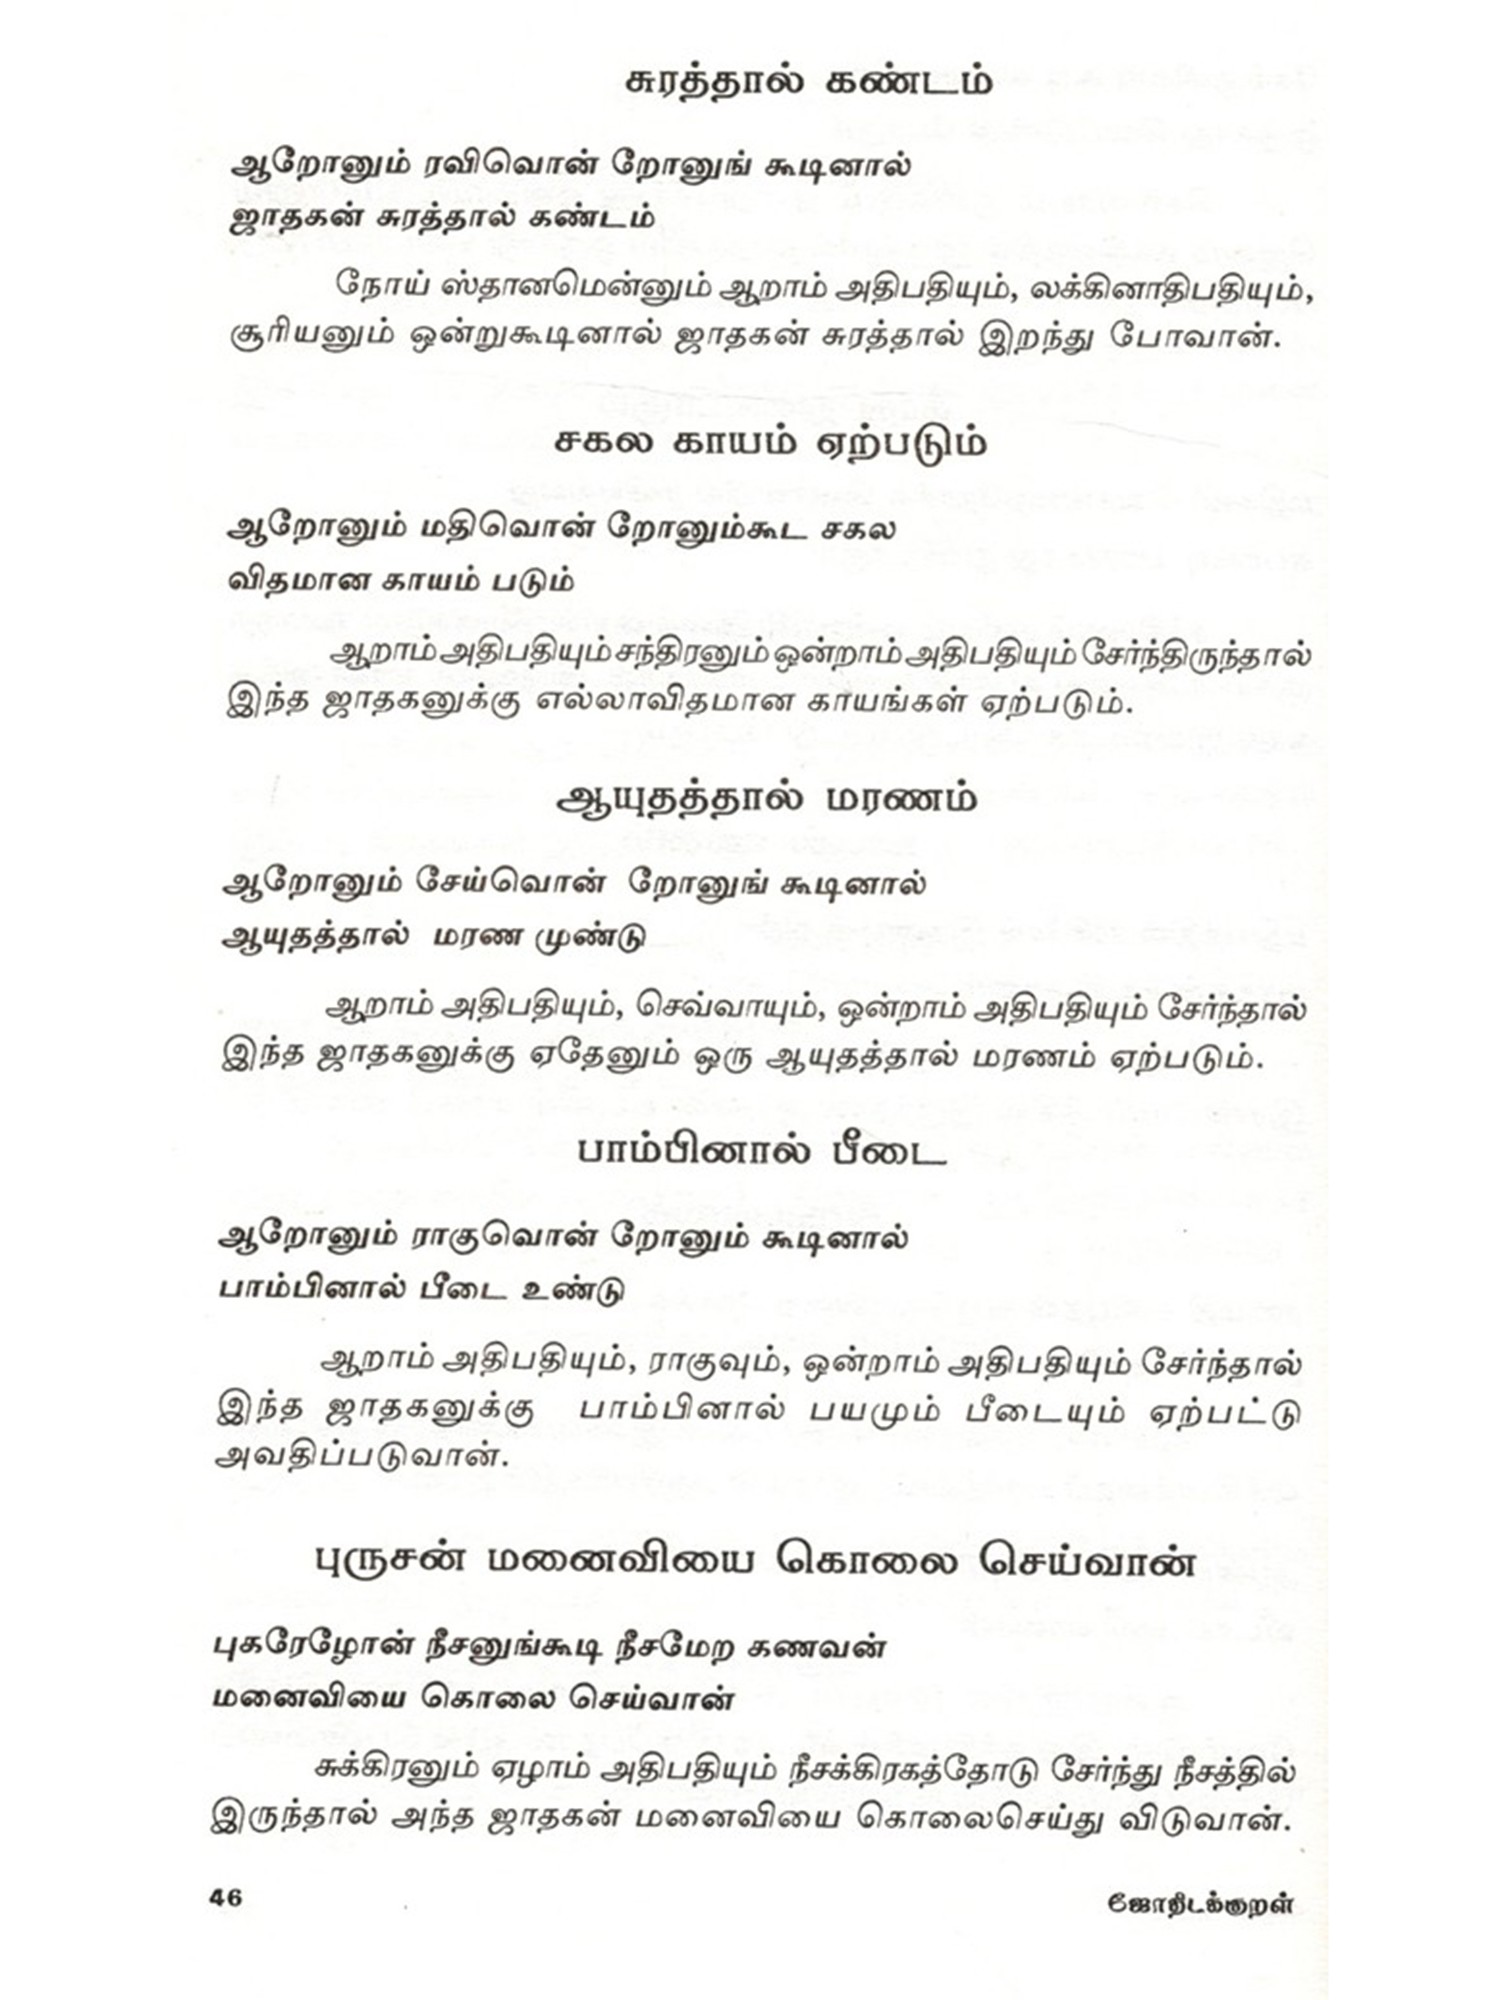 சுரத்தால் கண்டம்
ஆறோனும் ரவிவொன் றோனுங் கூடினால்
ஜாதகன் சுரத்தால் கண்டம்
நோய் ஸ்தானமென்னும் ஆறாம் அதிபதியும், லக்கினாதிபதியும்,
சூரியனும் ஒன்றுகூடினால் ஜாதகன் சுரத்தால் இறந்து போவான்.
சகல காயம் ஏற்படும்
ஆறோனும் மதிவொன் றோனும்கூட சகல
விதமான காயம் படும்
ஆறாம் அதிபதியும் சந்திரனும் ஒன்றாம் அதிபதியும் சேர்ந்திருந்தால்
இந்த ஜாதகனுக்கு எல்லாவிதமான காயங்கள் ஏற்படும்.
ஆயுதத்தால் மரணம்
ஆறோனும் சேய்வொன் றோனுங் கூடினால்
ஆயுதத்தால் மரண முண்டு
ஆறாம் அதிபதியும், செவ்வாயும், ஒன்றாம் அதிபதியும் சேர்ந்தால்
இந்த ஜாதகனுக்கு ஏதேனும் ஒரு ஆயுதத்தால் மரணம் ஏற்படும்.
பாம்பினால் பீடை
ஆறோனும் ராகுவொன் றோனும் கூடினால்
பாம்பினால் பீடை உண்டு
ஆறாம் அதிபதியும், ராகுவும், ஒன்றாம் அதிபதியும் சேர்ந்தால்
இந்த ஜாதகனுக்கு பாம்பினால் பயமும் பீடையும் ஏற்பட்டு
அவதிப்படுவான்.
புருசன் மனைவியை கொலை செய்வான்
புகரேழோன் நீசனுங்கூடி நீசமேற கணவன்
மனைவியை கொலை செய்வான்
சுக்கிரனும் ஏழாம் அதிபதியும் நீசக்கிரகத்தோடு சேர்ந்து நீசத்தில்
இருந்தால் அந்த ஜாதகன் மனைவியை கொலைசெய்து விடுவான்.
46 ஜோதிடக்குறள்